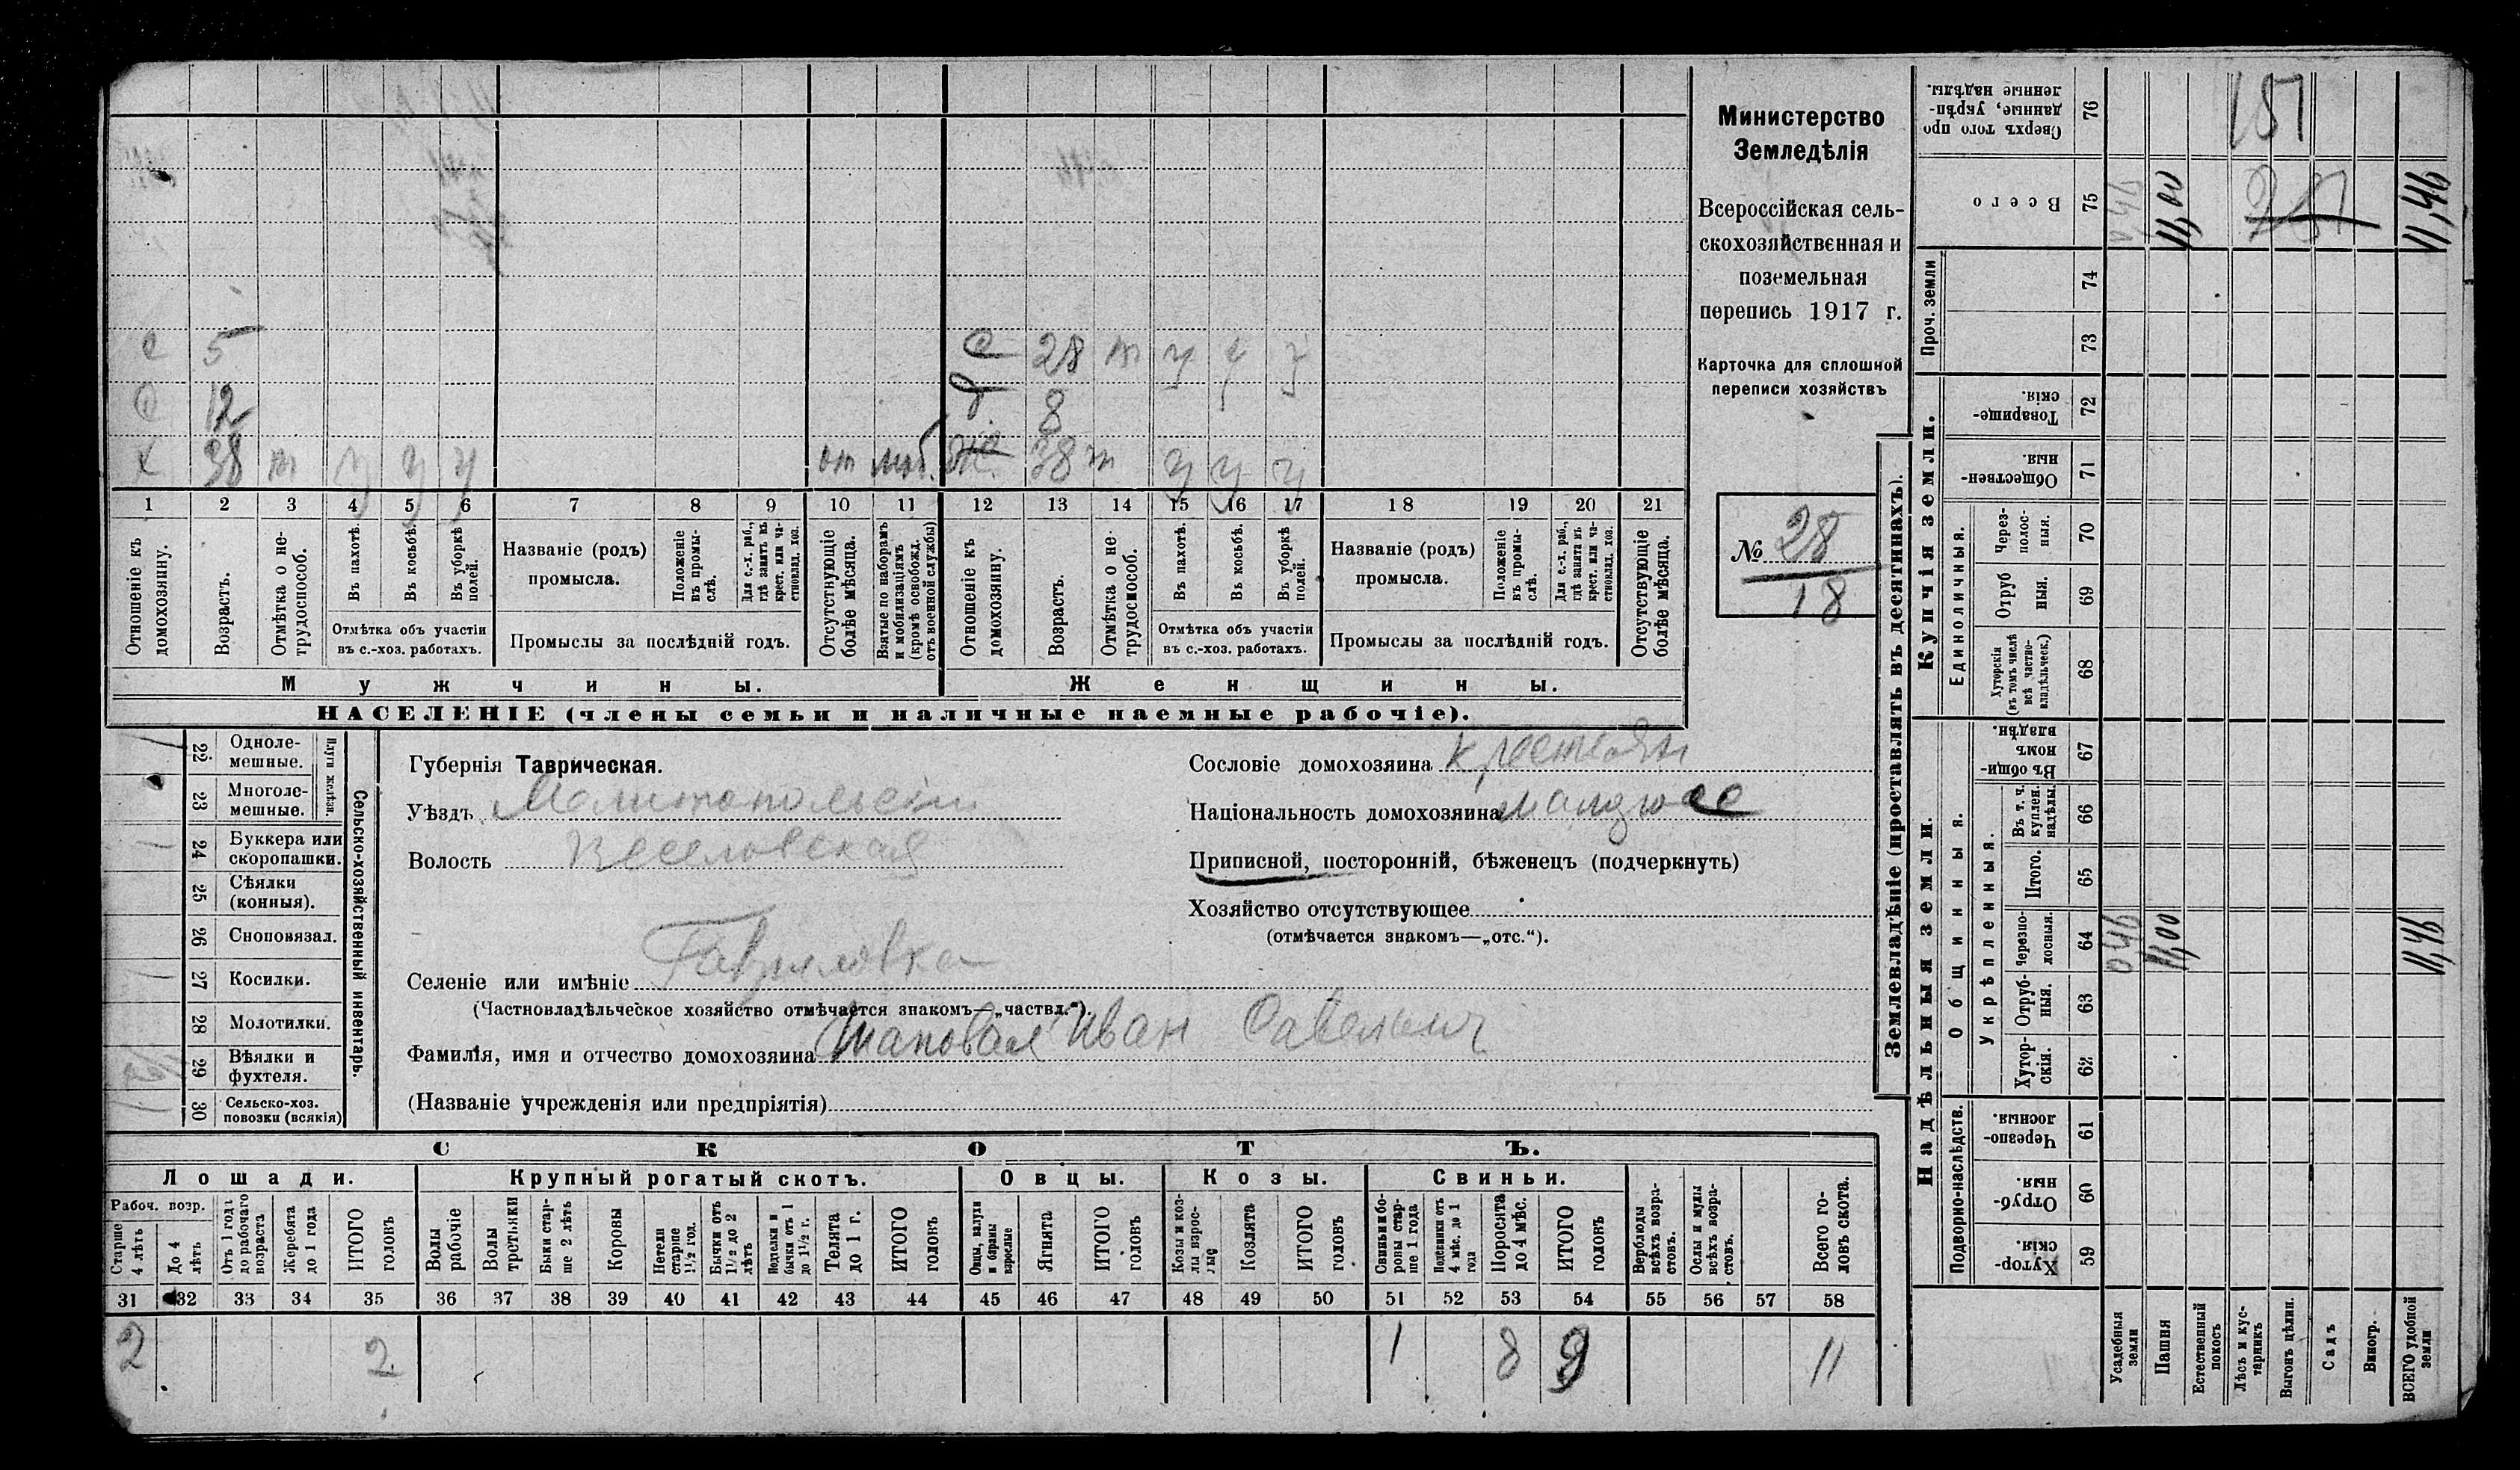 е 5 е 28 т у у у
е 12 д 8
х 38 т у у у от моб. же 38 т у у у
1 2 3 4 5 6 7 8 9 10 11 12 13 14 15 16 17 18 19 20 21
Отношеніе къ домохозяину.
Возрастъ.
Отмѣтка о не-трудоспособ.
Въ пахотѣ.
Въ косьбѣ.
Въ уборкѣ полей.
Отмѣтка объ участіи
въ с.-хоз. работахъ.
Названіе (родъ)
промысла.
Положеніе въ промы-слѣ.
Для с.-х. раб., гдѣ занятъ въ крест. или ча-стновлад. хоз.
Промыслы за послѣдній годъ.
Отсутствующіе болѣе мѣсяца.
Взятые по наборамъ и мобилизаціямъ (кромѣ освобожд. отъ военной службы)
Отношеніе къ домохозяину.
Возрастъ.
Отмѣтка о не-трудоспособ.
Въ пахотѣ.
Въ косьбѣ.
Въ уборкѣ полей.
Отмѣтка объ участіи
въ с.-хоз. работахъ.
Названіе (родъ)
промысла.
Положеніе въ промы-слѣ.
Для с.-х. раб., гдѣ занята въ крест. или ча-стновлад. хоз.
Промыслы за послѣдній годъ.
Отсутствующіе болѣе мѣсяца.
Мужчины. Женщины.
НАСЕЛЕНІЕ (члены семьи и наличные наемные рабочіе).
Министерство
Земледѣлія
Всероссійская сель-
скохозяйственная и
поземельная
перепись 1917 г.
Карточка для сплошной
переписи хозяйствъ
№ 28
18
Сельско-хозяйственный инвентарь.
Плуги желѣзн.
22 Одноле-мешные.
23 Многоле-мешные.
24 Буккера или скоропашки.
25 Сѣялки (конныя).
26 Сноповязал.
27 Косилки.
28 Молотилки.
29 Вѣялки и фухтеля.
30 Сельско-хоз. повозки (всякія)
Губернія Таврическая.
Уѣздъ Мелитопольскій
Волость Веселовская
Селеніе или имѣніе Гавриловка
(Частновладѣльческое хозяйство отмѣчается знакомъ—„частвл.“).
Фамилія, имя и отчество домохозяина Шаповал Иван Савельич
(Названіе учрежденія или предпріятія)
Сословіе домохозяина крестьян
Національность домохозяина малорос
Приписной, посторонній, бѣженецъ (подчеркнуть)
Хозяйство отсутствующее
(отмѣчается знакомъ—„отс.“).
СКОТЪ.
Лошади. Крупный рогатый скотъ. Овцы. Козы. Свиньи.
Рабоч. возр.
Старше 4 лѣтъ
До 4 лѣтъ
Отъ 1 года до рабочаго возраста
Жеребята до 1 года
ИТОГО головъ
Волы рабочіе
Волы третьяки
Быки стар-ше 2 лѣтъ
Коровы
Нетели старше 1½ год.
Бычки отъ 1½ до 2 лѣтъ
Подтелки и бычки отъ 1 до 1½ г.
Телята до 1 г.
ИТОГО головъ
Овцы, валухи и бараны взрослые
Ягнята
ИТОГО головъ
Козы и коз-лы взрос-лые
Козлята
ИТОГО головъ
Свиньи и бо-ровы стар-ше 1 года
Подсвинки отъ 4 мѣс. до 1 года
Поросята до 4 мѣс.
ИТОГО головъ
Верблюды всѣхъ возра-стовъ.
Ослы и мулы всѣхъ возра-стовъ.
Всего го-ловъ скота.
31 32 33 34 35 36 37 38 39 40 41 42 43 44 45 46 47 48 49 50 51 52 53 54 55 56 57 58
2 2 1 8 9 11
Землевладѣніе (проставлять въ десятинахъ).
Надѣльныя земли. Купчія земли. Проч. земли
Подворно-наслѣдств.
Общинныя.
Укрѣпленныя.
Единоличныя.
Хутор-скія. 59
Отруб-ныя. 60
Черезпо-лосныя. 61
Хутор-скія. 62
Отруб-ныя. 63
Черезпо-лосныя. 64
Итого. 65
Въ т. ч. куплен. надѣлы. 66
Въ общин-номъ владѣн. 67
Хуторскія (въ томъ числѣ всѣ частно-владѣльческ.) 68
Отруб ныя. 69
Через-полос-ныя. 70
Обществен-ныя. 71
Товарище-скія. 72
73
74
Всего 75
Сверхъ того про данные, укрѣп-ленные надѣлы. 76
Усадебныя земли
Пашня
Естественный покосъ
Лѣсъ и кус-тарникъ
Выгонъ цѣлин.
Садъ
Виногр.
ВСЕГО удобной земли
0,46 11,00 11,46
0,46 11,00 11,46
151